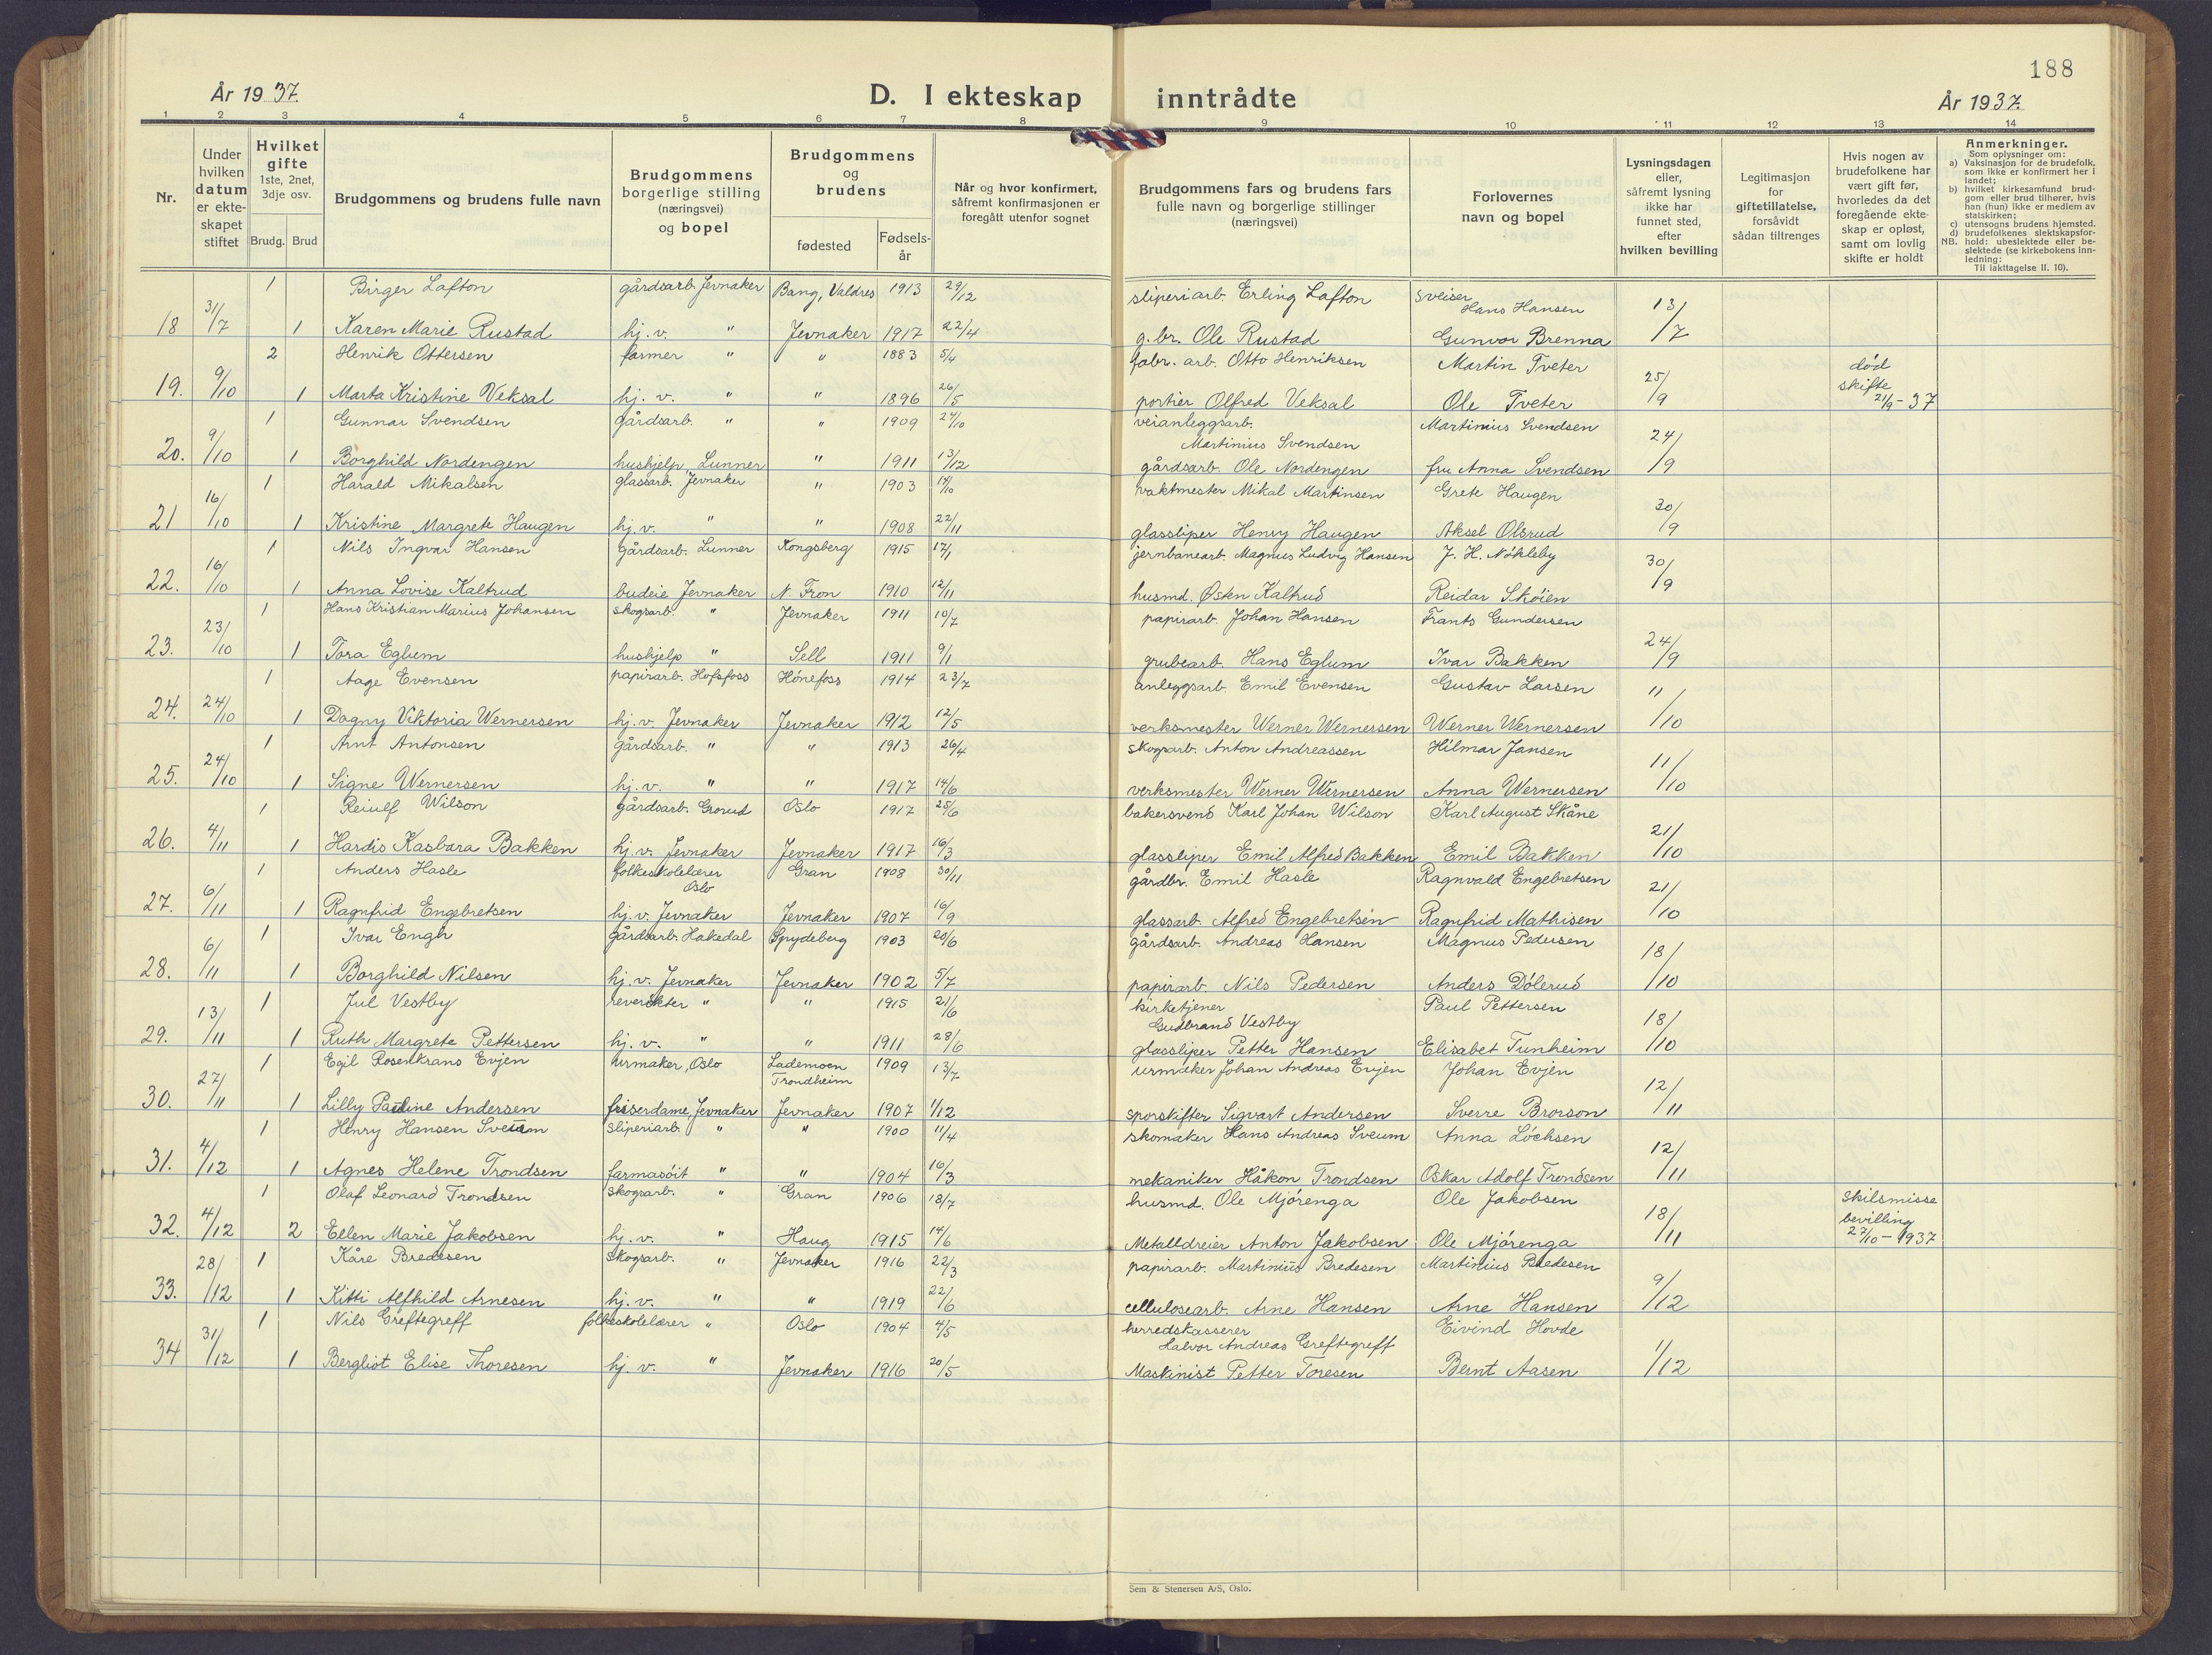 188
År 1937.
D. I ekteskap inntrådte
År 1937.
1 2 3 4 5 6 7 8 9 10 11 12 13 14
Nr.
Under hvilken datum er ekteskapet stiftet
Hvilket gifte 1ste, 2net, 3dje osv.
Brudg. Brud
Brudgommens og brudens fulle navn
Brudgommens borgerlige stilling (næringsvei) og bopel
Brudgommens og brudens
fødested
Fødselsår
Når og hvor konfirmert, såfremt konfirmasjonen er foregått utenfor sognet
Brudgommens fars og brudens fars fulle navn og borgerlige stillinger (næringsvei)
Forlovernes navn og bopel
Lysningsdagen eller, såfremt lysning ikke har funnet sted, efter hvilken bevilling
Legitimasjon for giftetillatelse, forsåvidt sådan tiltrenges
Hvis nogen av brudefolkene har vært gift før, hvorledes da det foregående ekteskap er opløst, samt om lovlig skifte er holdt
Anmerkninger.
Som oplysninger om:
a) Vaksinasjon for de brudefolk, som ikke er konfirmert her i landet;
b) hvilket kirkesamfund brudgom eller brud tilhører, hvis han (hun) ikke er medlem av statskirken;
c) utensogns brudens hjemsted.
d) brudefolkenes slektskapsforhold: ubeslektede eller beslektede (se kirkebokens Innledning:
NB. Til iakttagelse II. 10).
1 Birger Lafton gårdsarb. Jevnaker Bang, Valdres 1913 29/12 sliperiarb. Erling Lafton sveiser Hans Hansen
18 31/7 1 Karen Marie Rustad hj. v. " Jevnaker 1917 22/4 g. br. Ole Rustad Gunvor Brenna 13/7
2 Henrik Ottersen farmer " " 1883 5/4 fabr. arb. Otto Henriksen Martin Tveter død
19. 9/10 1 Marta Kristine Veksal hj. v. " " 1896 26/5 portier Olfred Veksal Ole Tveter 25/9 skifte 21/9 - 37
1 Gunnar Svendsen gårdsarb. " " 1909 24/10 veianleggsarb. Martinius Svendsen Martinius Svendsen
20. 9/10 1 Borghild Nordengen hushjelp Lunner " 1911 13/12 gårdsarb. Ole Nordengen fru Anna Svendsen 24/9
1 Harald Mikalsen glassarb. Jevnaker " 1903 14/10 vaktmester Mikal Martinsen Grete Haugen
21 16/10 1 Kristine Margrete Haugen hj. v. " " 1908 22/11 glassliper Henry Haugen Aksel Olsrud 30/9
1 Nils Ingvar Hansen gårdsarb. Lunner Kongsberg 1915 17/1 jernbanearb. Magnus Ludvig Hansen J. H. Nökleby
22. 16/10 1 Anna Lovise Kaltrud budeie Jevnaker N. Fron 1910 12/11 husmd. Østen Kaltrud Reidar Sköien 30/9
1 Hans Kristian Marius Johansen skogsarb. " Jevnaker 1911 10/7 papirarb. Johan Hansen Frants Gundersen
23. 23/10 1 Tora Eglum hushjelp " Sell 1911 9/1 grubearb. Hans Eglum Ivar Bakken 24/9
1 Aage Evensen papirarb. Hofsfoss Hönefoss 1914 23/7 anleggsarb. Emil Evensen Gustav Larsen
24. 24/10 1 Dagny Viktoria Wernersen hj. v. Jevnaker Jevnaker 1912 12/5 verksmester Werner Wernersen Werner Wernersen 11/10
1 Arnt Antonsen gårdsarb. " " 1913 26/4 skogsarb. Anton Andreassen Hilmar Jansen
25. 24/10 1 Signe Wernersen hj. v. " " 1917 14/6 verksmester Werner Wernersen Anna Wernersen 11/10
1 Reiulf Wilson gårdsarb. Grorud Oslo 1917 25/6 bakersvend Karl Johan Wilson Karl August Skåne
26. 4/11 1 Hardis Kasbara Bakken hj. v. Jevnaker Jevnaker 1917 16/3 glassliper Emil Alfred Bakken Emil Bakken 21/10
1 Anders Hasle folkeskolelærer Oslo Gran 1908 30/11 gårdbr. Emil Hasle Ragnvald Engebretsen
27. 6/11 1 Ragnfrid Engebretsen hj. v. Jevnaker Jevnaker 1907 16/9 glassarb. Alfred Engebretsen Ragnfrid Mathisen 21/10
1 Ivar Engh gårdsarb. Hakedal Spydeberg 1903 20/6 gårdsarb. Andreas Hansen Magnus Pedersen
28. 6/11 1 Borghild Nilsen hj. v. Jevnaker Jevnaker 1902 5/7 papirarb. Nils Pedersen Anders Dölerud 18/10
1 Jul Vestby reverökter " " 1915 21/6 kirketjener Gudbrand Vestby Paul Pettersen
29. 13/11 1 Ruth Margrete Pettersen hj. v. " " 1911 28/6 glassliper Petter Hansen Elisabet Tunheim 18/10
1 Egil Rosenkrans Evjen urmaker, Oslo Lademoen Trondheim 1909 13/7 urmaker Johan Andreas Evjen Johan Evjen
30. 27/11 1 Lilly Pauline Andersen friserdame, Jevnaker Jevnaker 1907 1/12 sporskifter Sigvart Andersen Sverre Brorson 12/11
1 Henry Hansen Sveum sliperiarb. " " 1900 11/4 skomaker Hans Andreas Sveum Anna Löchsen
31. 4/12 1 Agnes Helene Trondsen farmasöit " " 1904 16/3 mekaniker Håkon Trondsen Oskar Adolf Trondsen 12/11
1 Olaf Leonard Trondsen skogsarb. " Gran 1906 18/7 husmd. Ole Mjörenga Ole Jakobsen skilsmisse
32. 4/12 2 Ellen Marie Jakobsen hj. v. " Haug 1915 14/6 Metalldreier Anton Jakobsen Ole Mjörenga 18/11 bevilling 27/10 - 1937
1 Kåre Bredesen skogsarb. " Jevnaker 1916 22/3 papirarb. Martinius Bredesen Martinius Bredesen
33. 28/12 1 Kitti Alfhild Arnesen hj. v. " " 1919 22/6 cellulosearb. Arne Hansen Arne Hansen 9/12
1 Nils Greftegreff folkeskolelærer " Oslo 1904 4/5 herredskasserer Halvor Andreas Greftegreff Eivind Hovde
34 31/12 1 Bergliot Elise Thoresen hj. v. " Jevnaker 1916 20/5 Maskinist Petter Toresen Bernt Aasen 1/12
Sem & Stenersen A/S, Oslo.